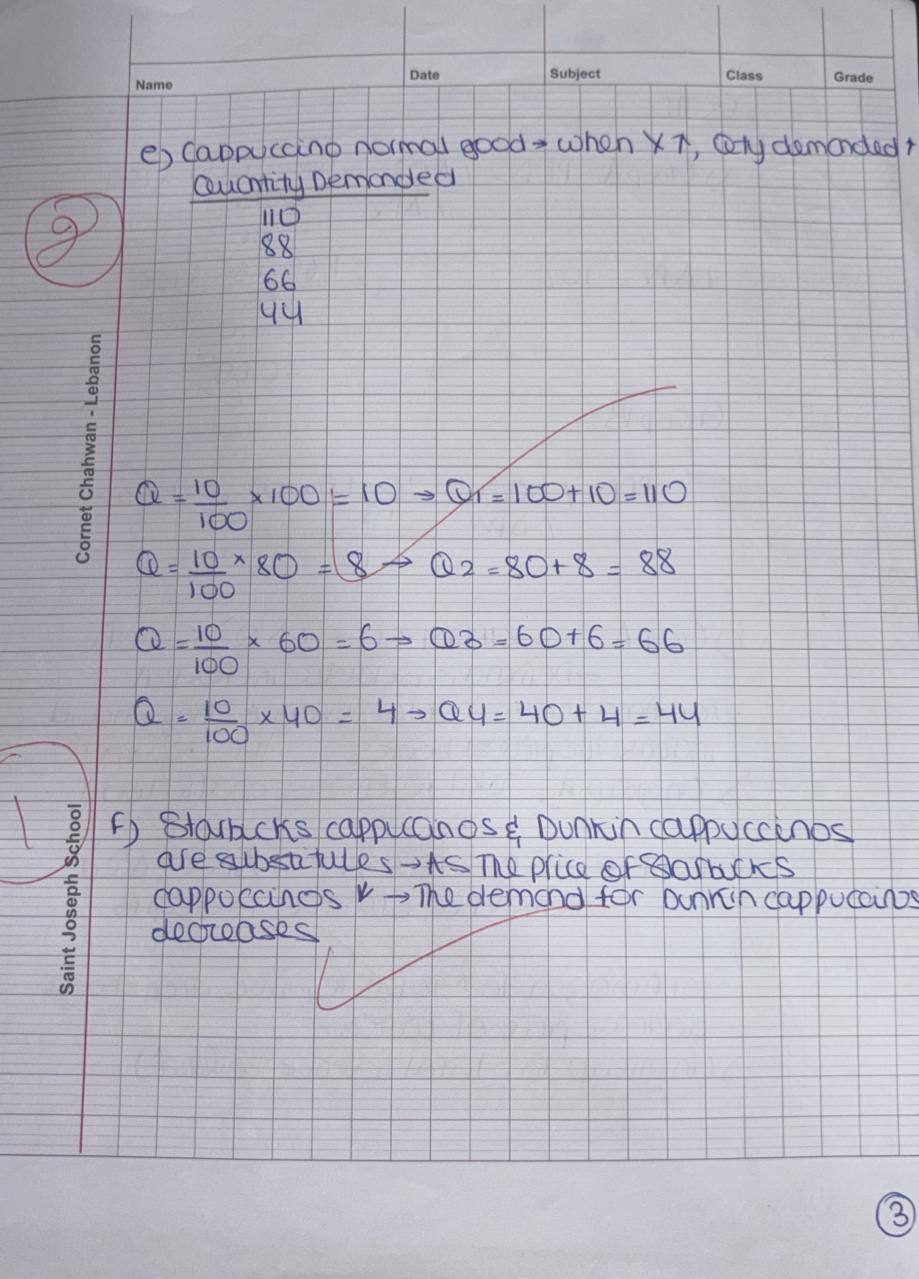 Name Date Subject Class Grade
e) Cappuccino normal good → when Y ↑, Qty demanded ↑
Quantity Demanded
110
88
66
44
2
Cornet Chahwan - Lebanon
Q = 10/100 × 100 = 10 → Q1 = 100 + 10 = 110
Q = 10/100 × 80 = 8 → Q2 = 80 + 8 = 88
Q = 10/100 × 60 = 6 → Q3 = 60 + 6 = 66
Q = 10/100 × 40 = 4 → Q4 = 40 + 4 = 44
1
Saint Joseph School
F) Starbucks cappuccinos & Dunkin cappuccinos
are substitutes → As The price of Starbucks
cappoccinos ↓ → The demand for Dunkin cappuccinos
decreases
3